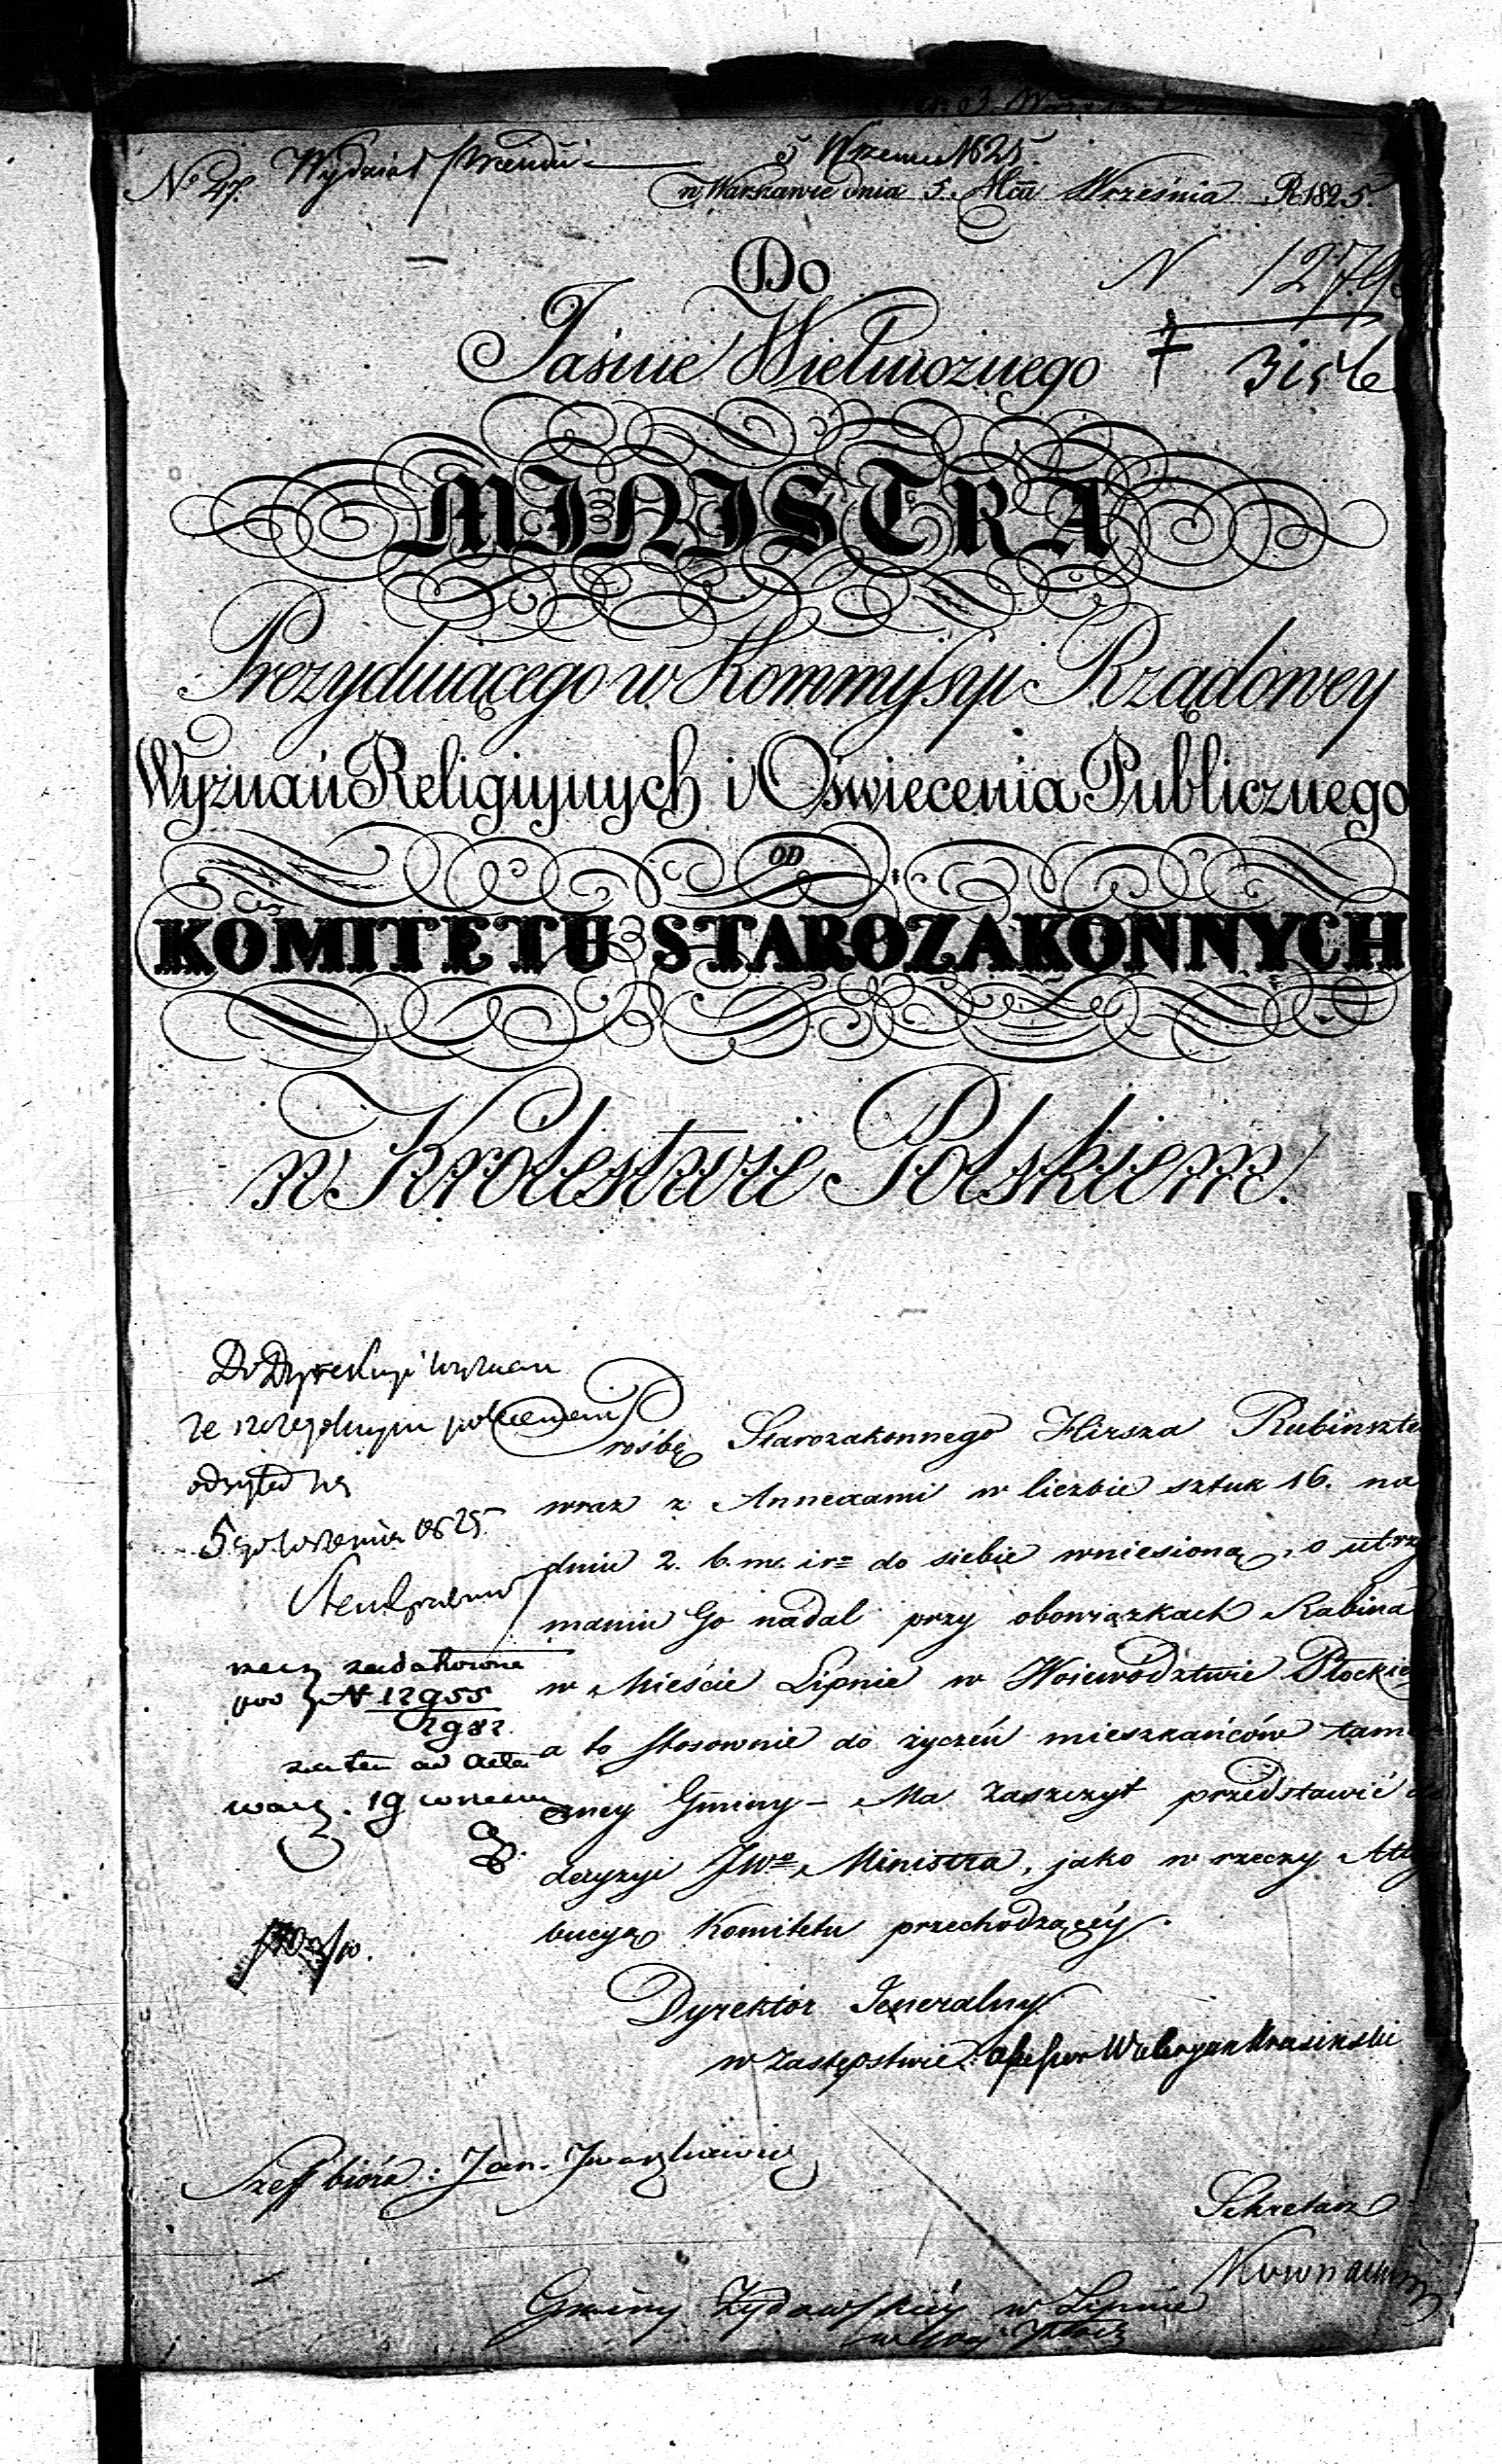 No 47. Wydział
5 Wrzesnia 1825.
w Warszawie dnia 5. Mca Września R. 1825.
N 1279
3156
Do
Jaśnie Wielmożnego
MINISTRA
Prezydującego w Kommyssyi Rządowey
Wyznań Religiynych i Oświecenia Publicznego
OD
KOMITETU STAROZAKONNYCH
w Królestwie Polskiem.
Do Dyrekcyi wyznań
ze szczególnym poleceniem
odsyła się
5go Września 1825
rzecz zadatowana
pod N 12955
2982
zatem ad acta
warsz. 19 wrzesn
Prośbę Starozakonnego Hirsza Rubinszte
wraz z Annexami w liczbie sztuk 16. na
dniu 2. b. m. i r. do siebie wniesioną, o utrzy
maniu Go nadal przy obowiązkach Rabina
w Mieście Lipnie w Województwie Płockie
a to stosownie do życzeń mieszkańców tam
eczney Gminy – Ma zaszczyt przedstawić do
decyzyi JWo Ministra, jako w rzeczy Atry
bucyą Komitetu przechodzącéy.
Dyrektor Jeneralny
w Zastępstwie: Assessor Waleryan Krasiński
Szeff bióra: Jan
Sekretarz
Gminy Żydowskiéy w Lipnie